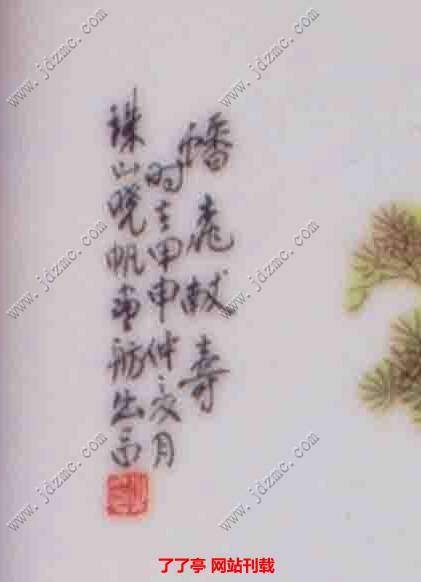 幡献寿
时在甲申仲之夏月
珠山晓帆画舫出品
www.jdzmc.com
www.jdzmc.com
www.jdzmc.com
www.jdzmc.com
www.jdzmc.com
www.jdzmc.com
www.jdzmc.com
了了亭 网站刊载